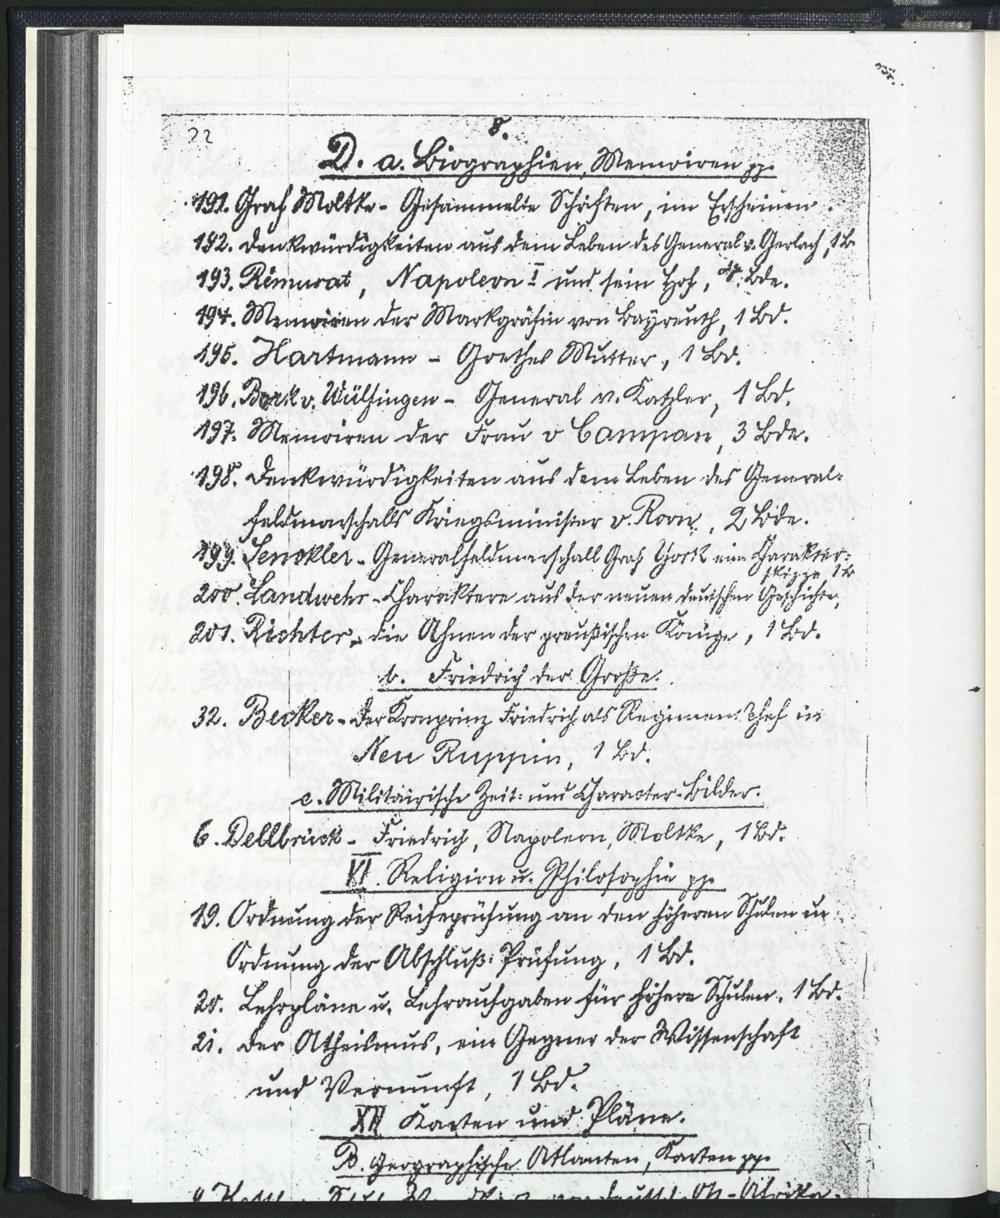 22
8.
D. a. Biographien, Memoiren pp.
191. Graf Moltke - Gesammelte Schriften, im Erscheinen.
192. Denkwürdigkeiten aus dem Leben des General v. Gerlach, 1 B.
193. Rémusat, Napoleon I und sein Hof, Bde.
194. Memoiren der Markgräfin von Bayreuth, 1 Bd.
195. Hartmann - Goethes Mutter, 1 Bd.
196. Bork v. Wülfingen - General v. Katzler, 1 Bd.
197. Memoiren der Frau v Campan, 3 Bde.
198. Denkwürdigkeiten aus dem Leben des General-
feldmarschalls Kriegsminister v. Roon, 2 Bde.
199. Generalfeldmarschall Graf York eine Charakter-
skizze, 1 B
200. Landwehr - Charaktere aus der neuen deutschen Geschichte,
201. Richter, die Ahnen der preußischen Könige, 1 Bd.
b. Friedrich der Große.
32. Becker - Der Kronprinz Friedrich als Regiments Chef in
Neu Ruppin, 1 Bd.
c. Militairische Zeit- und Character-Bilder.
6. Dellbrück - Friedrich, Napoleon, Moltke, 1 Bd.
VI. Religion u. Philosophie pp.
19. Ordnung der Reifeprüfung an den höheren Schulen u
Ordnung der Abschluß-Prüfung, 1 Bd.
20. Lehrpläne u. Lehraufgaben für höhere Schulen. 1 Bd.
21. Der Atheismus, ein Gegner der Wissenschaft
und Vernunft, 1 Bd.
XII Karten und Pläne.
B. Geographische Atlanten, Karten pp.